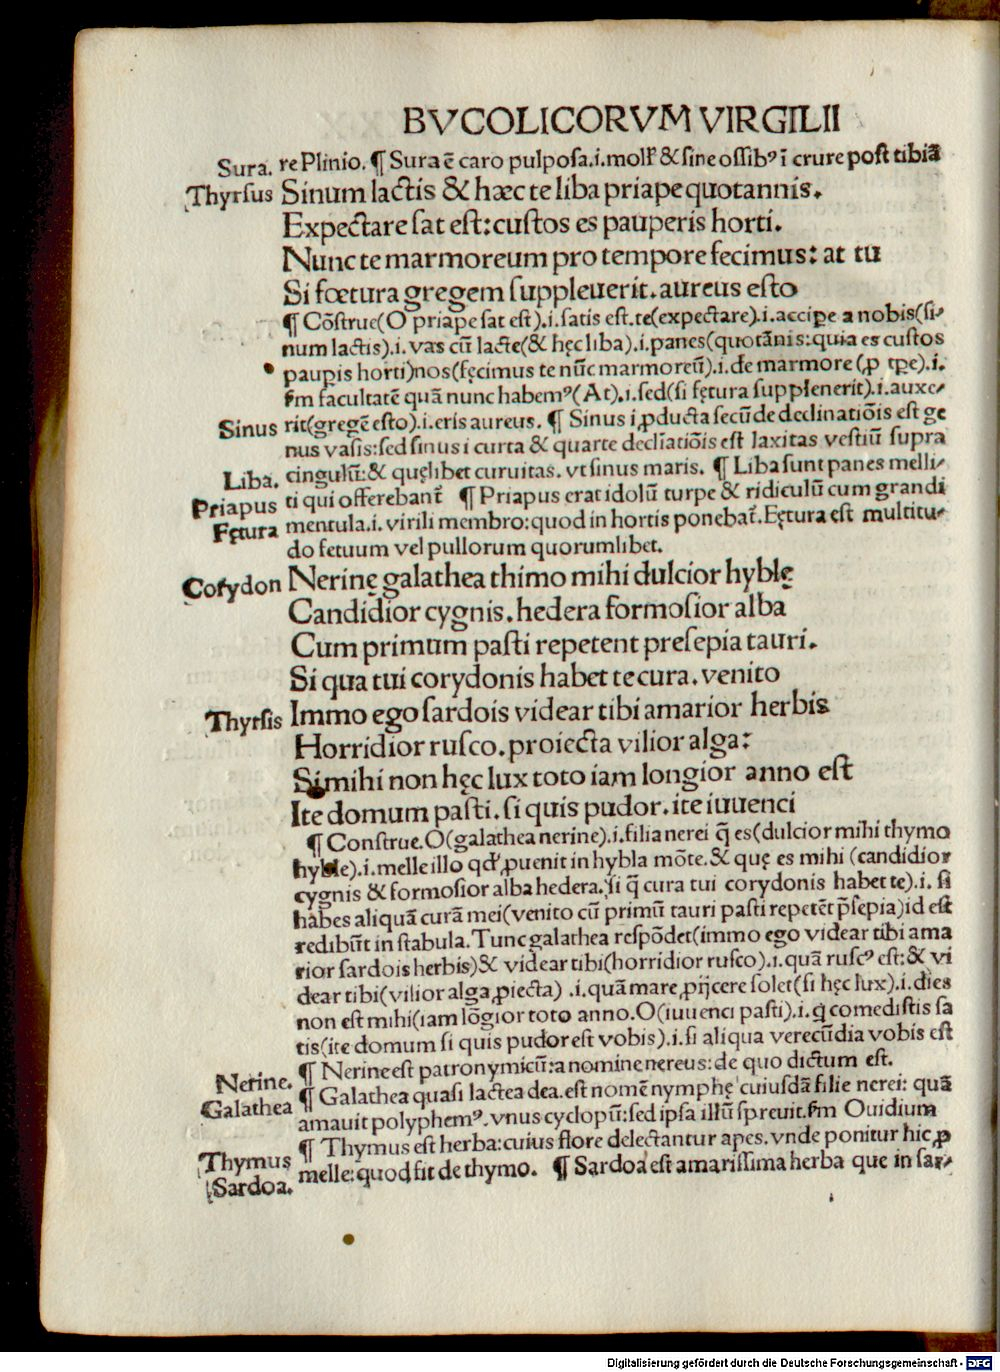 BVCOLICORVM VIRGILII
Sura. re Plinio. ¶ Sura ē caro pulposa.i.moll' & sine ossibꝰ ī crure post tibiā
Thyrsus Sinum lactis & hæc te liba priape quotannis.
Expectare sat est: custos es pauperis horti.
Nunc te marmoreum pro tempore fecimus: at tu
Si fœtura gregem suppleuerit. aureus esto
¶ Cōstrue(O priape sat est).i.satis est.te(expectare).i.accipe a nobis(si-
num lactis).i. vas cū lacte(& hęc liba).i.panes(quotānis:quia es custos
paup̲is horti)nos(fęcimus te nūc marmoreū).i.de marmore(ꝓ tp̲e).i.
ſm facultatē quā nunc habemꝰ(At).i.sed(si fętura supplenerit).i.auxe-
Sinus rit(gregē esto).i.eris aureus. ¶ Sinus i ꝓducta secūde declinatiōis est ge
nus vasis:sed sinus i curta & quarte decliatiōis est laxitas vestiū supra
Liba. cingulū:& quęlibet curuitas. vt sinus maris. ¶ Liba sunt panes melli-
Priapus ti qui offerebant̄ ¶ Priapus erat idolū turpe & ridiculū cum grandi
Fętura mentula.i. virili membro:quod in hortis ponebat̄. Fętura est multitu-
do fetuum vel pullorum quorumlibet.
Corydon Nerinę galathea thimo mihi dulcior hyblę
Candidior cygnis. hedera formosior alba
Cum primum pasti repetent presepia tauri.
Si qua tui corydonis habet te cura. venito
Thyrsis Immo ego sardois videar tibi amarior herbis
Horridior rusco. proiecta vilior alga:
Si mihi non hęc lux toto iam longior anno est
Ite domum pasti. si quis pudor. ite iuuenci
¶ Construe. O(galathea nerine).i.filia nerei q̄ es(dulcior mihi thymo
hyble).i.melle illo qd' ꝓuenit in hybla mōte. & quę es mihi (candidior
cygnis & formosior alba hedera. si q̄ cura tui corydonis habet te).i. si
habes aliquā curā mei(venito cū primū tauri pasti repetēt p̄sepia)id est
redibūt in stabula. Tunc galathea respōdet(immo ego videar tibi ama
rior sardois herbis)& videar tibi(horridior rusco).i.quā ruscꝰ est:& vi
dear tibi(vilior alga ꝓiecta) .i.quā mare ꝓijcere solet(si hęc lux).i.dies
non est mihi(iam lōgior toto anno. O(iuuenci pasti).i.q̲ comedistis sa
tis(ite domum si quis pudor est vobis).i.si aliqua verecūdia vobis est
Nerine. ¶ Nerine est patronymicū:a nomine nereus:de quo dictum est.
Galathea ¶ Galathea quasi lactea dea.est nomē nymphę cuiusdā filie nerei: quā
amauit polyphemꝰ. vnus cyclopū:sed ipsa illū spreuit.ſm Ouidium
¶ Thymus est herba:cuius flore delectantur apes. vnde ponitur hic ꝓ
Thymus melle:quod fit de thymo. ¶ Sardoa est amarissima herba que in sar-
Sardoa.
Digitalisierung gefördert durch die Deutsche Forschungsgemeinschaft - DFG